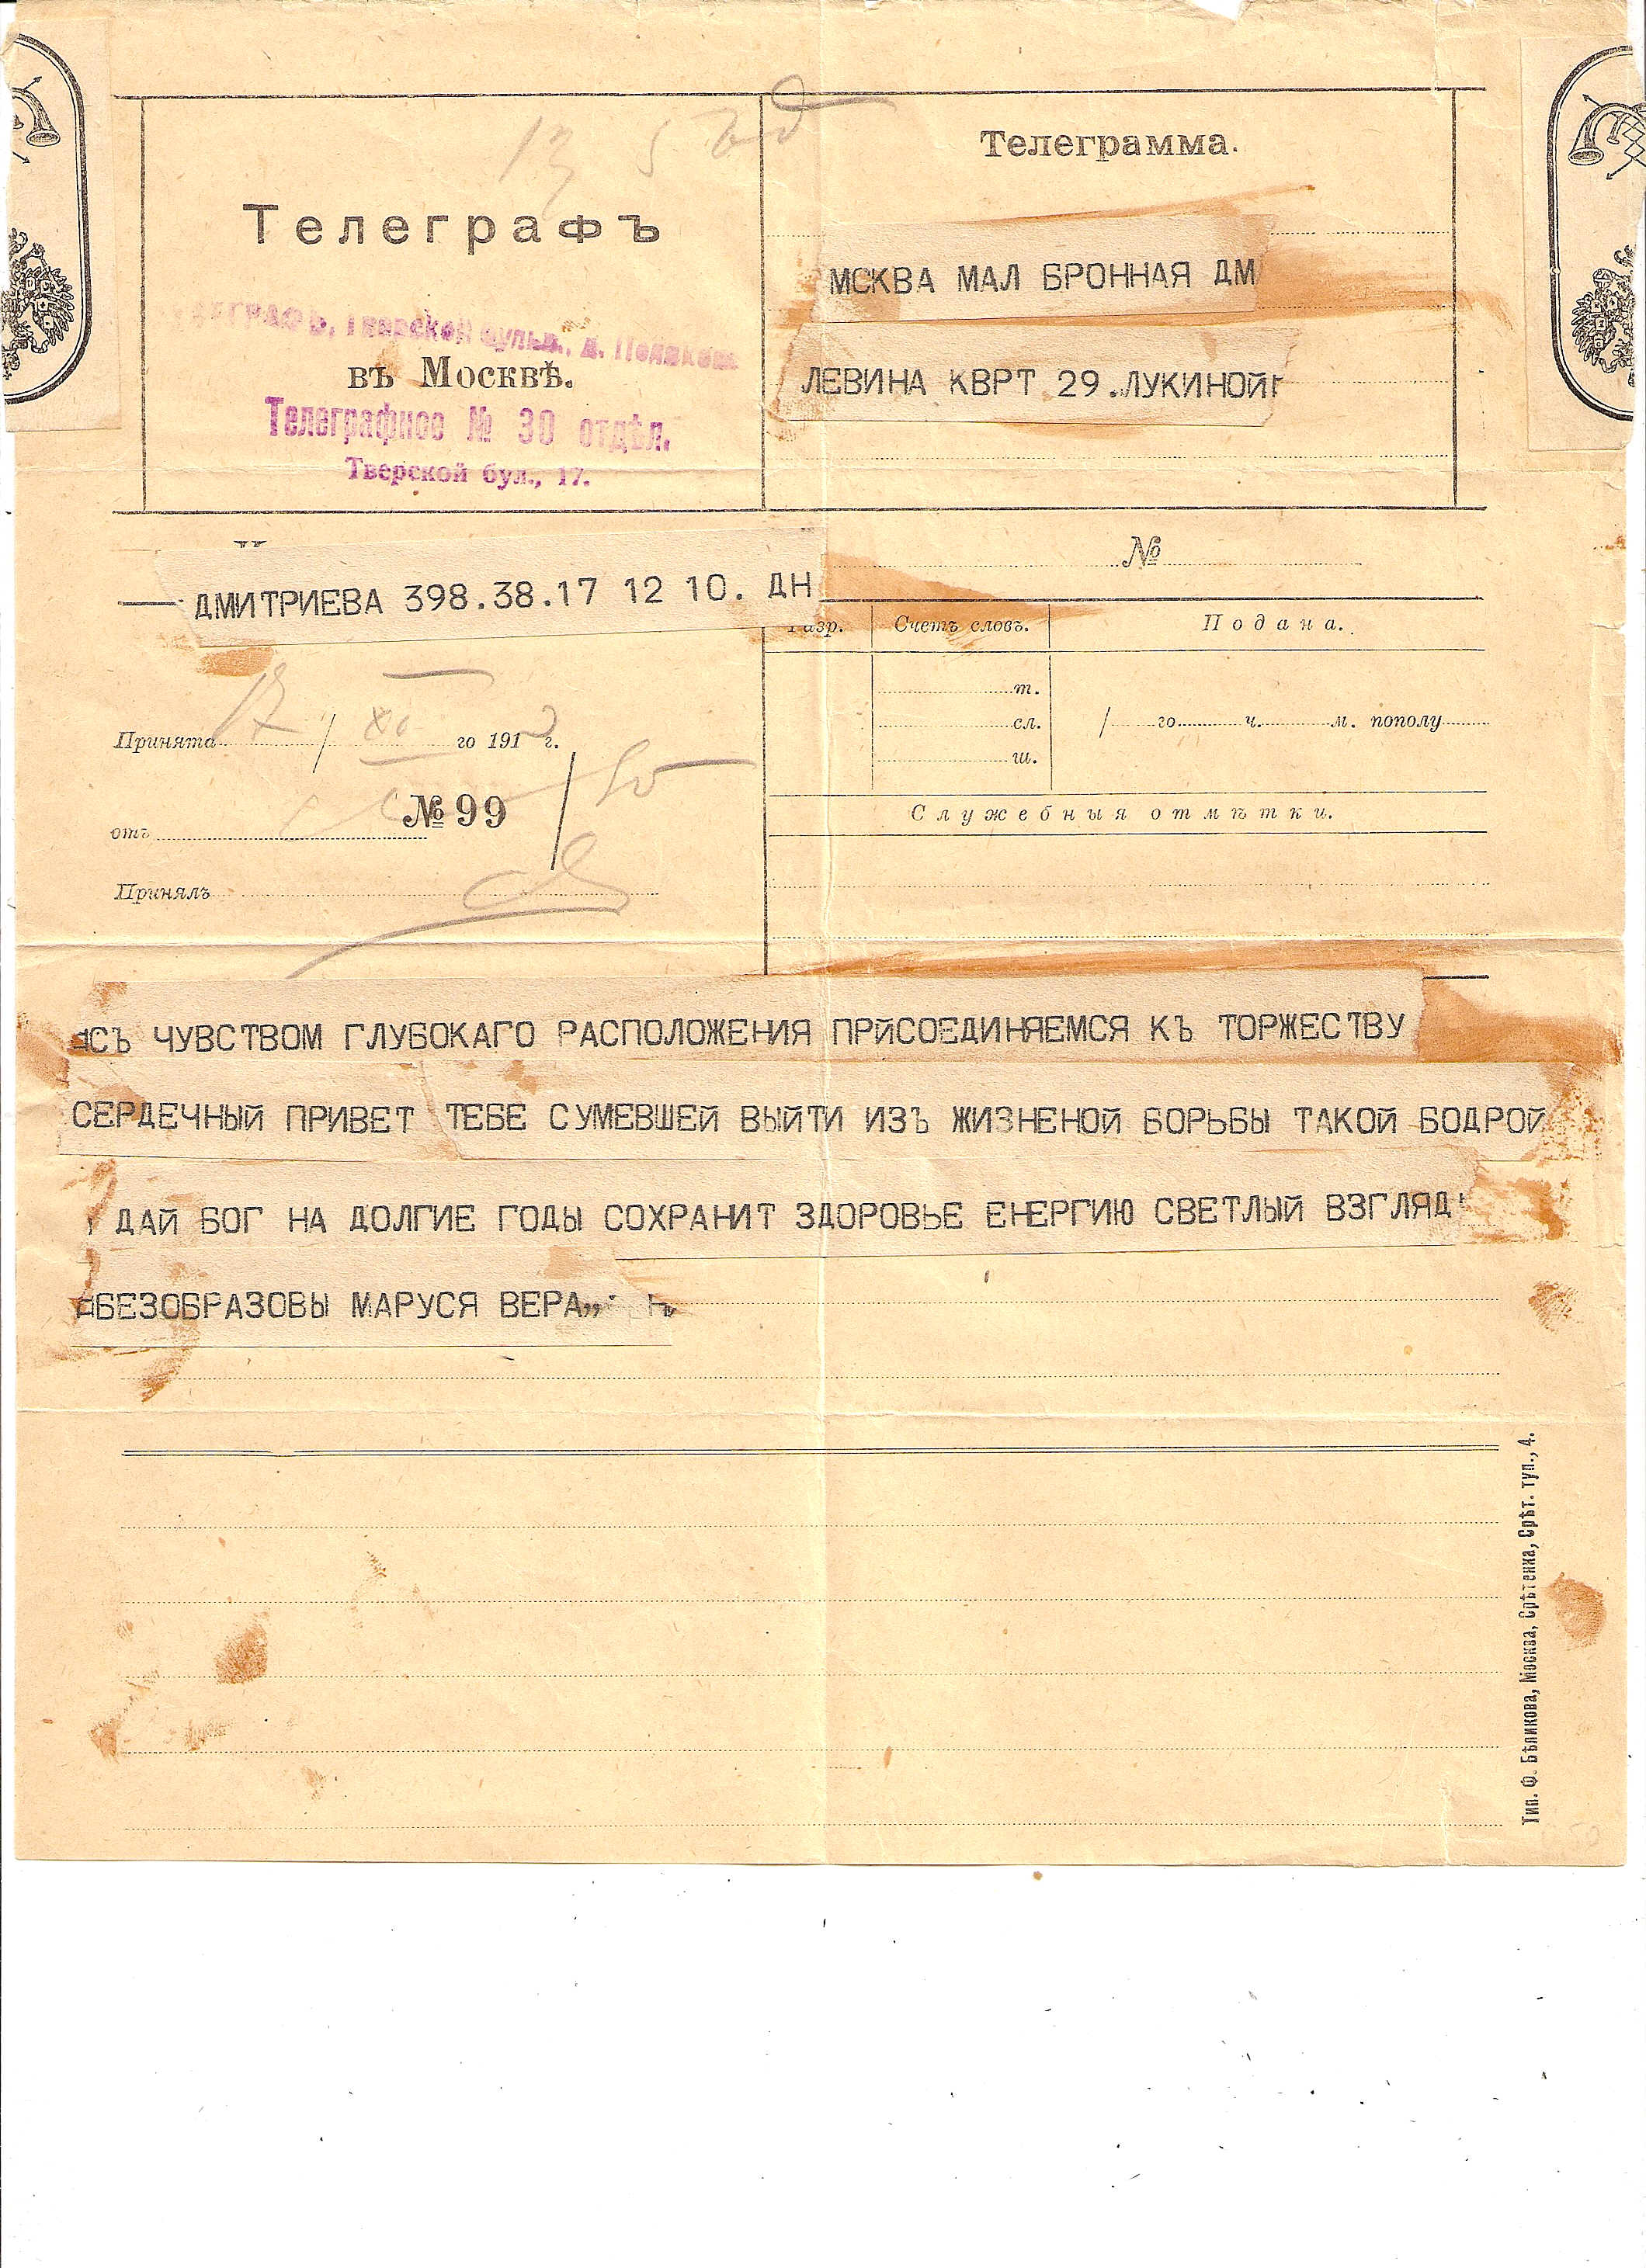 Телеграфъ
въ Москвѣ.
Телеграфное № 30 отдѣл.
Тверской бул., 17.
Телеграмма.
МСКВА МАЛ БРОННАЯ ДМ
ЛЕВИНА КВРТ 29.ЛУКИНОЙ
№
ДМИТРИЕВА 398.38.17 12 10. ДН
Разр. Счетъ словъ. Подана.
т.
сл. / го ч. м. пополу
ш.
Служебныя отмѣтки.
Принята 17 / го 191 г.
отъ № 99
Принялъ
СЪ ЧУВСТВОМ ГЛУБОКАГО РАСПОЛОЖЕНИЯ ПРЙСОЕДИНЯЕМСЯ КЪ ТОРЖЕСТВУ
СЕРДЕЧНЫЙ ПРИВЕТ ТЕБЕ СУМЕВШЕЙ ВЫЙТИ ИЗЪ ЖИЗНЕНОЙ БОРЬБЫ ТАКОЙ БОДРОЙ
ДАЙ БОГ НА ДОЛГИЕ ГОДЫ СОХРАНИТ ЗДОРОВЬЕ ЕНЕРГИЮ СВЕТЛЫЙ ВЗГЛЯД
БЕЗОБРАЗОВЫ МАРУСЯ ВЕРА,,
Тип. Ф. Бѣликова, Москва, Срѣтенка, Срѣт. туп., 4.